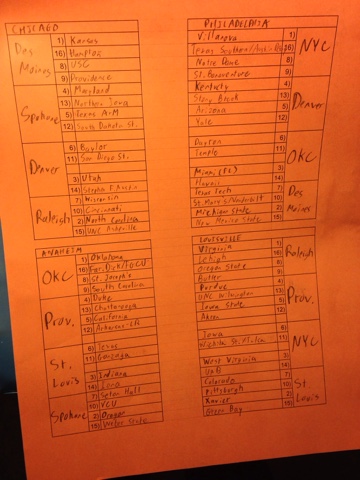 CHICAGO
Des Moines
1) Kansas
16) Hampton
8) USC
9) Providence
Spokane
4) Maryland
13) Northern Iowa
5) Texas A+M
12) South Dakota St.
Denver
6) Baylor
11) San Diego St.
3) Utah
14) Stephen F. Austin
Raleigh
7) Wisconsin
10) Cincinnati
2) North Carolina
15) UNC Asheville
PHILADELPHIA
Villanova 1)
Texas Southern/ 16)
Notre Dame 8)
St. Bonaventure 9)
NYC
Kentucky 4)
Stony Brook 13)
Arizona 5)
Yale 12)
Denver
Dayton 6)
Temple 11)
Miami (FL) 3)
Hawaii 14)
OKC
Texas Tech 7)
St. Mary's/Vanderbilt 10)
Michigan State 2)
New Mexico State 15)
Des Moines
ANAHEIM
OKC
1) Oklahoma
16) Far. Dick/FGCU
8) St. Joseph's
9) South Carolina
Prov.
4) Duke
13) Chattanooga
5) California
12) Arkansas-LR
St. Louis
6) Texas
11) Gonzaga
3) Indiana
14) Iona
Spokane
7) Seton Hall
10) VCU
2) Oregon
15) Weber State
LOUISVILLE
Virginia 1)
Lehigh 16)
Oregon State 8)
Butler 9)
Raleigh
Purdue 4)
UNC Wilmington 13)
Iowa State 5)
Akron 12)
Prov.
Iowa 6)
Wichita St./ 11)
West Virginia 3)
UAB 14)
NYC
Colorado 7)
Pittsburgh 10)
Xavier 2)
Green Bay 15)
St. Louis